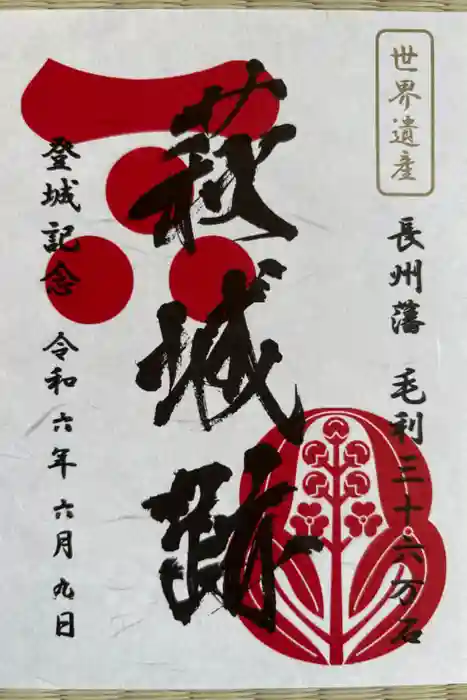 世界遺産
長州藩 毛利三十六万石
萩城跡
登城記念 令和六年 六月九日